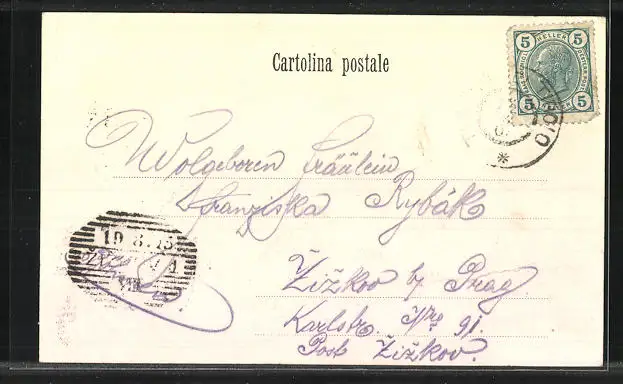 Cartolina postale
5 HELLER 5
5 5
Wolgeboren Fräulein
Franziska Rybák
19.8.
Žižkov b/ Prag
Karlstr. Nro 91.
Post Žižkov.